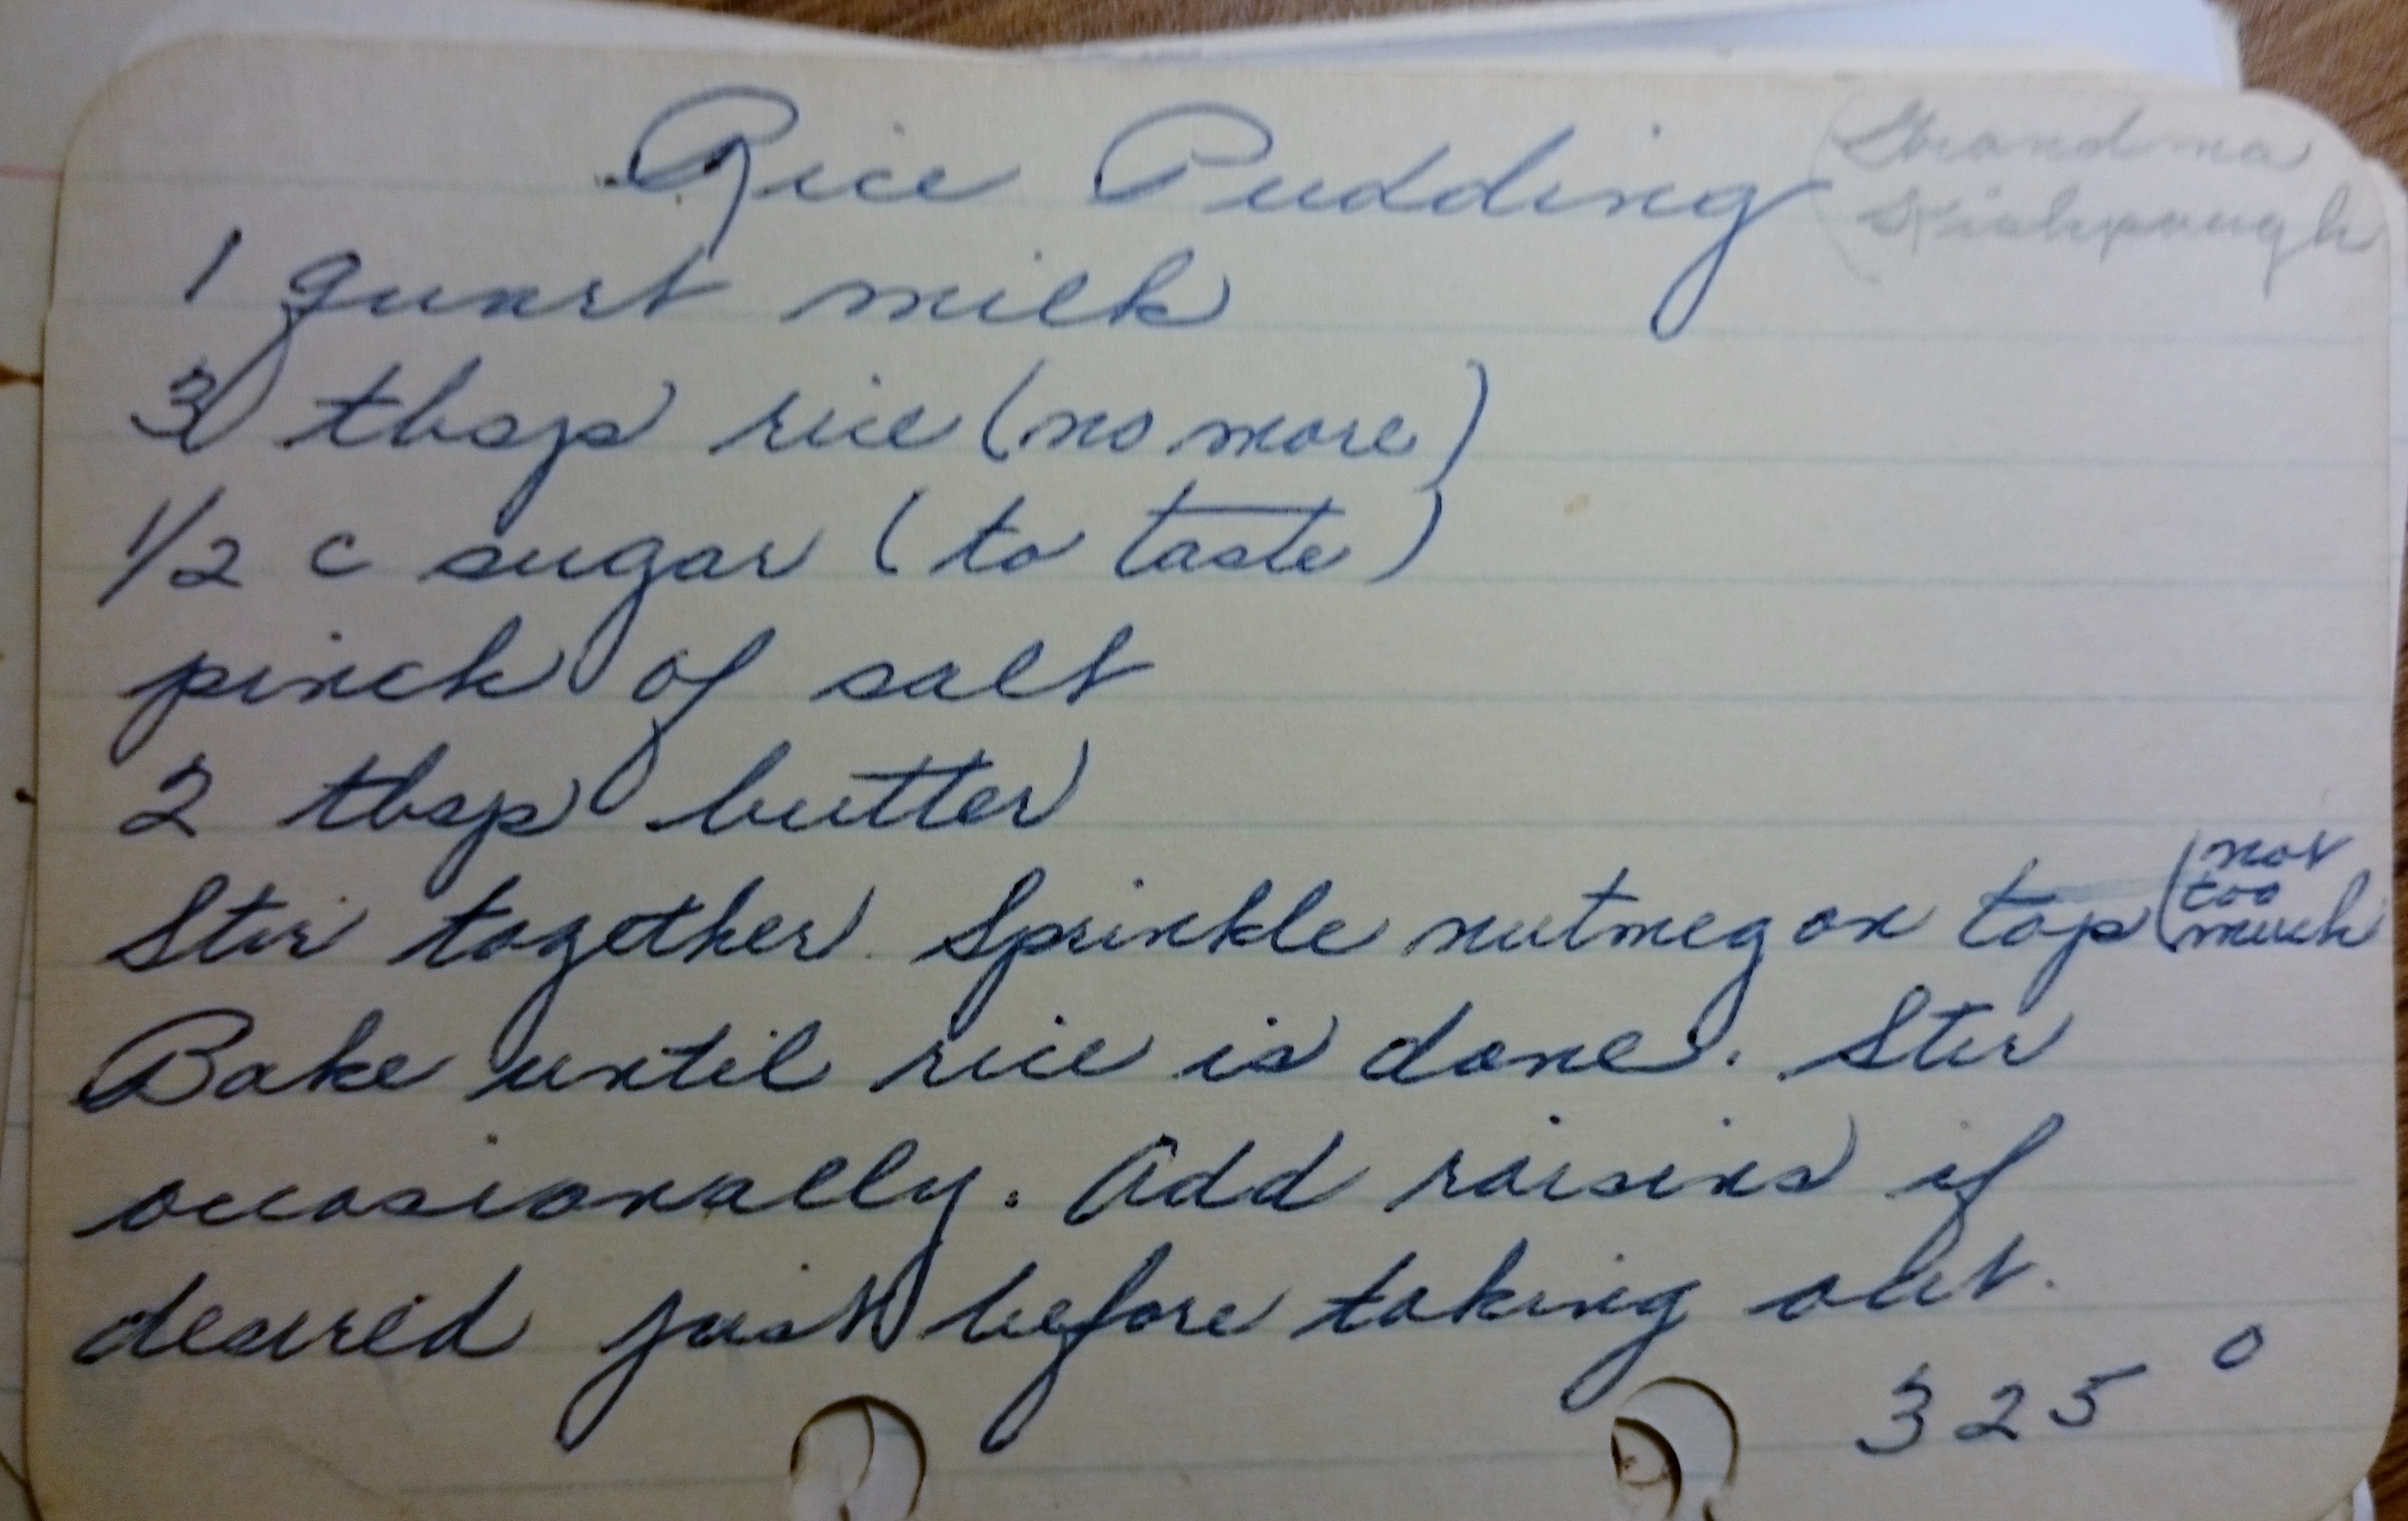 Rice Pudding (Grandma
Kishpaugh
1 quart milk
3 tbsp rice (no more)
1/2 c sugar (to taste)
pinch of salt
2 tbsp butter
Stir together. Sprinkle nutmeg on top (not too much
Bake until rice is done. Stir
occasionally. Add raisins if
desired just before taking out.
325°